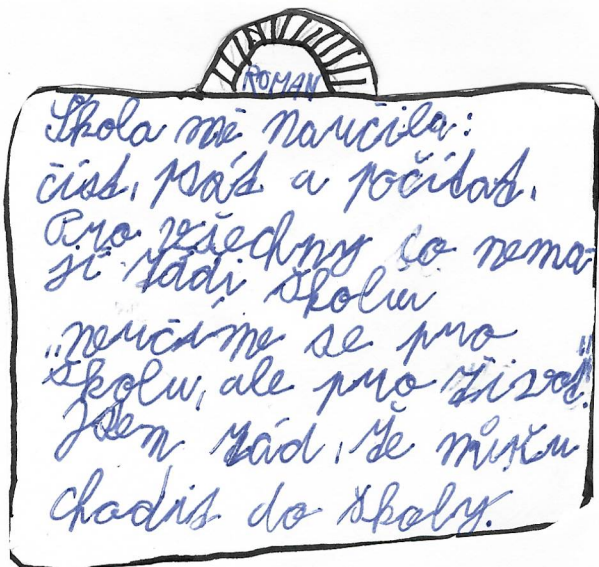 ROMAN
Škola mě naučila:
číst, psát a počítat.
Pro všechny co nema-
jí rádi školu
„neučíme se pro
školu, ale pro život."
Jsem rád, že můžu
chodit do školy.